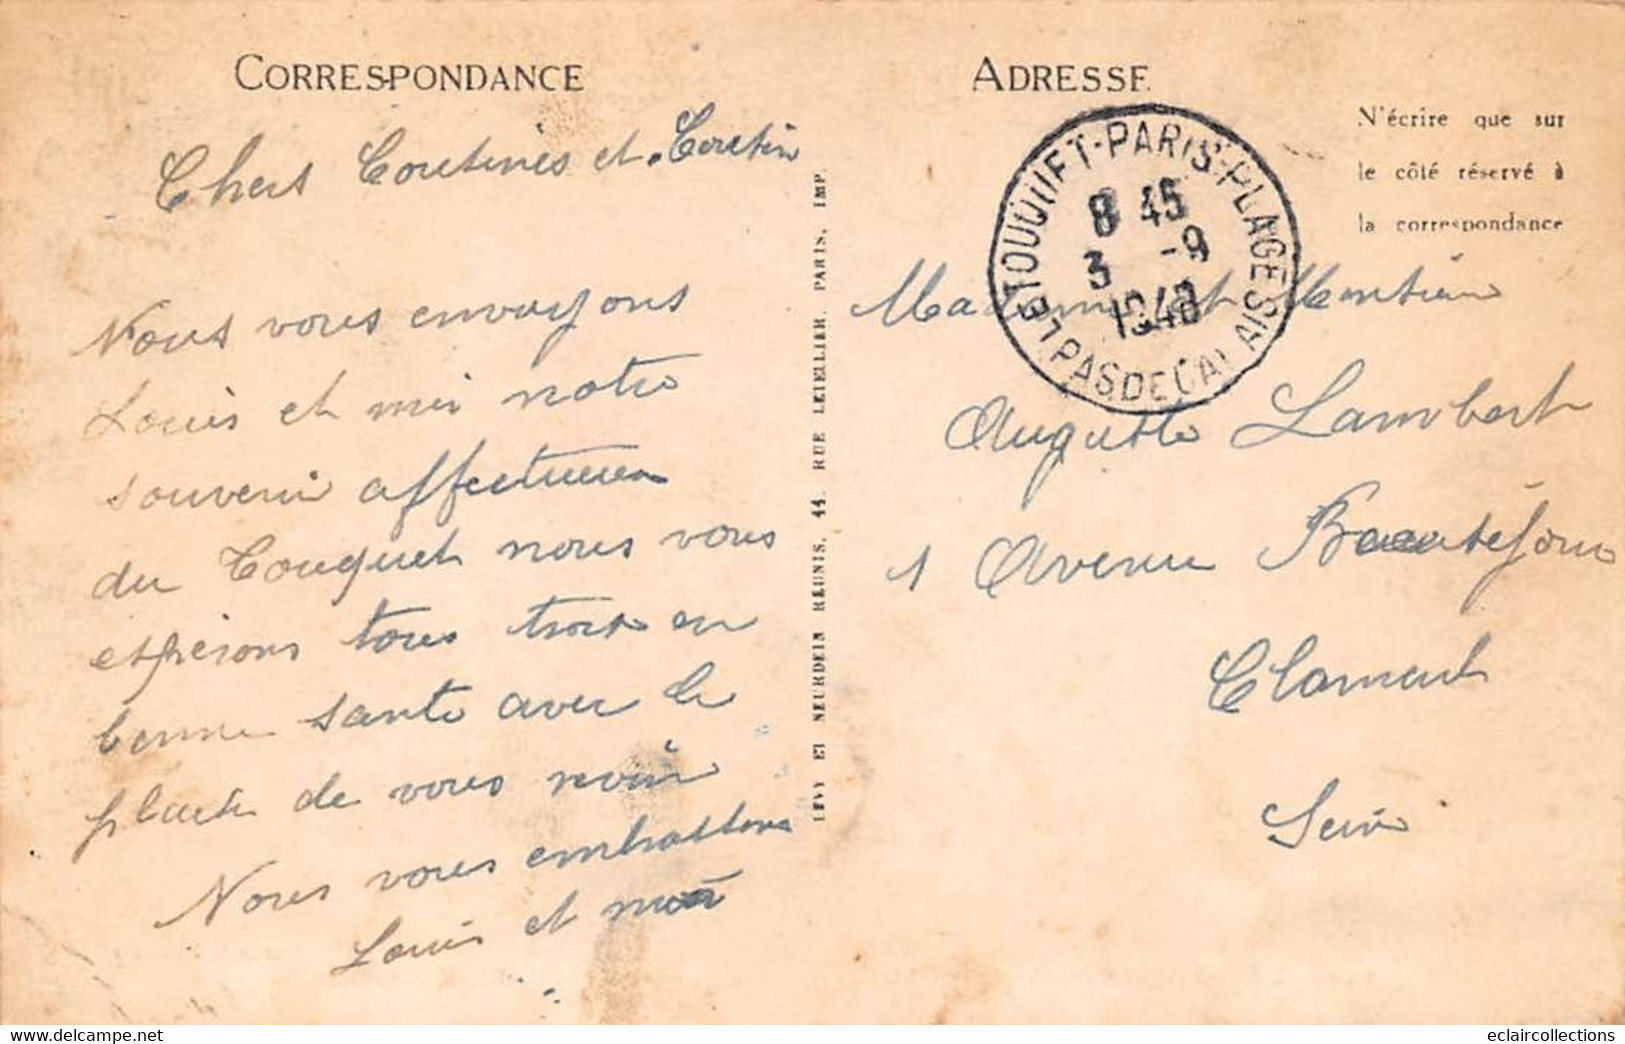 CORRESPONDANCE
Chers Cousines et Cousin
Nous vous envoyons
Louis et moi notre
souvenir affectueux
du Touquet nous vous
espérons tous trois en
bonne santé avec le
plaisir de vous revoir
Nous vous embrassons
Louis et moi
LEVY ET NEURDEIN REUNIS, 44, RUE LETELLIER, PARIS, IMP.
ADRESSE
N'écrire que sur
le côté réservé à
la correspondance
LE TOUQUET-PARIS-PLAGE
PAS DE CALAIS
8 45
3 -9
1948
Madame et Monsieur
Auguste Lambert
1 Avenue Beauséjour
Clamart
Seine
www.delcampe.net
eclaircollections